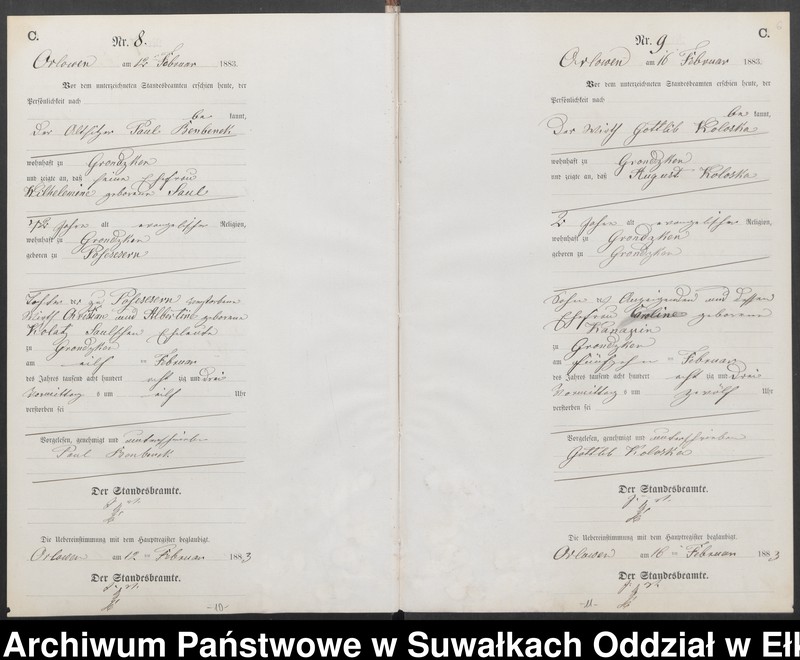 C.
Nr. 8.
Orlowen am 12. Februar 1883.
Vor dem unterzeichneten Standesbeamten erschien heute, der
Persönlichkeit nach
be kannt,
Der Altsitzer Paul Benbenek
wohnhaft zu Grondzken
und zeigte an, daß seine Ehefrau
Wilhelmine geborene Paul
Jahre alt evangelischer Religion,
wohnhaft zu Grondzken
geboren zu Possessern
Tochter der zu Possessern verstorbene
Wirth Christian und Albertine geborene
Kolatz Paulschen Eheleute
zu Grondzken
am eilf ten Februar
des Jahres tausend acht hundert acht zig und drei
Vormittag s um eilf Uhr
verstorben sei
Vorgelesen, genehmigt und unterschrieben
Paul Benbenek
Der Standesbeamte.
Die Uebereinstimmung mit dem Hauptregister beglaubigt.
Orlowen am 12 ten Februar 1883
Der Standesbeamte.
-10-
C.
Nr. 9
Orlowen am 16 Februar 1883.
Vor dem unterzeichneten Standesbeamten erschien heute, der
Persönlichkeit nach
be kannt,
Der Wirth Gottlib Koloska
wohnhaft zu Grondzken
und zeigte an, daß August Koloska
2 Jahre alt evangelischer Religion,
wohnhaft zu Grondzken
geboren zu Grondzken
Sohn des Anzeigenden und dessen
Ehefrau geborene
Kanazin
zu Grondzken
am fünfzehn ten Februar
des Jahres tausend acht hundert acht zig und drei
Vormittag s um zwölf Uhr
verstorben sei
Vorgelesen, genehmigt und unterschrieben
Gottlib Koloska
Der Standesbeamte.
Die Uebereinstimmung mit dem Hauptregister beglaubigt.
Orlowen am 16 ten Februar 1883
Der Standesbeamte.
-11-
Archiwum Państwowe w Suwałkach Oddział w Ełk